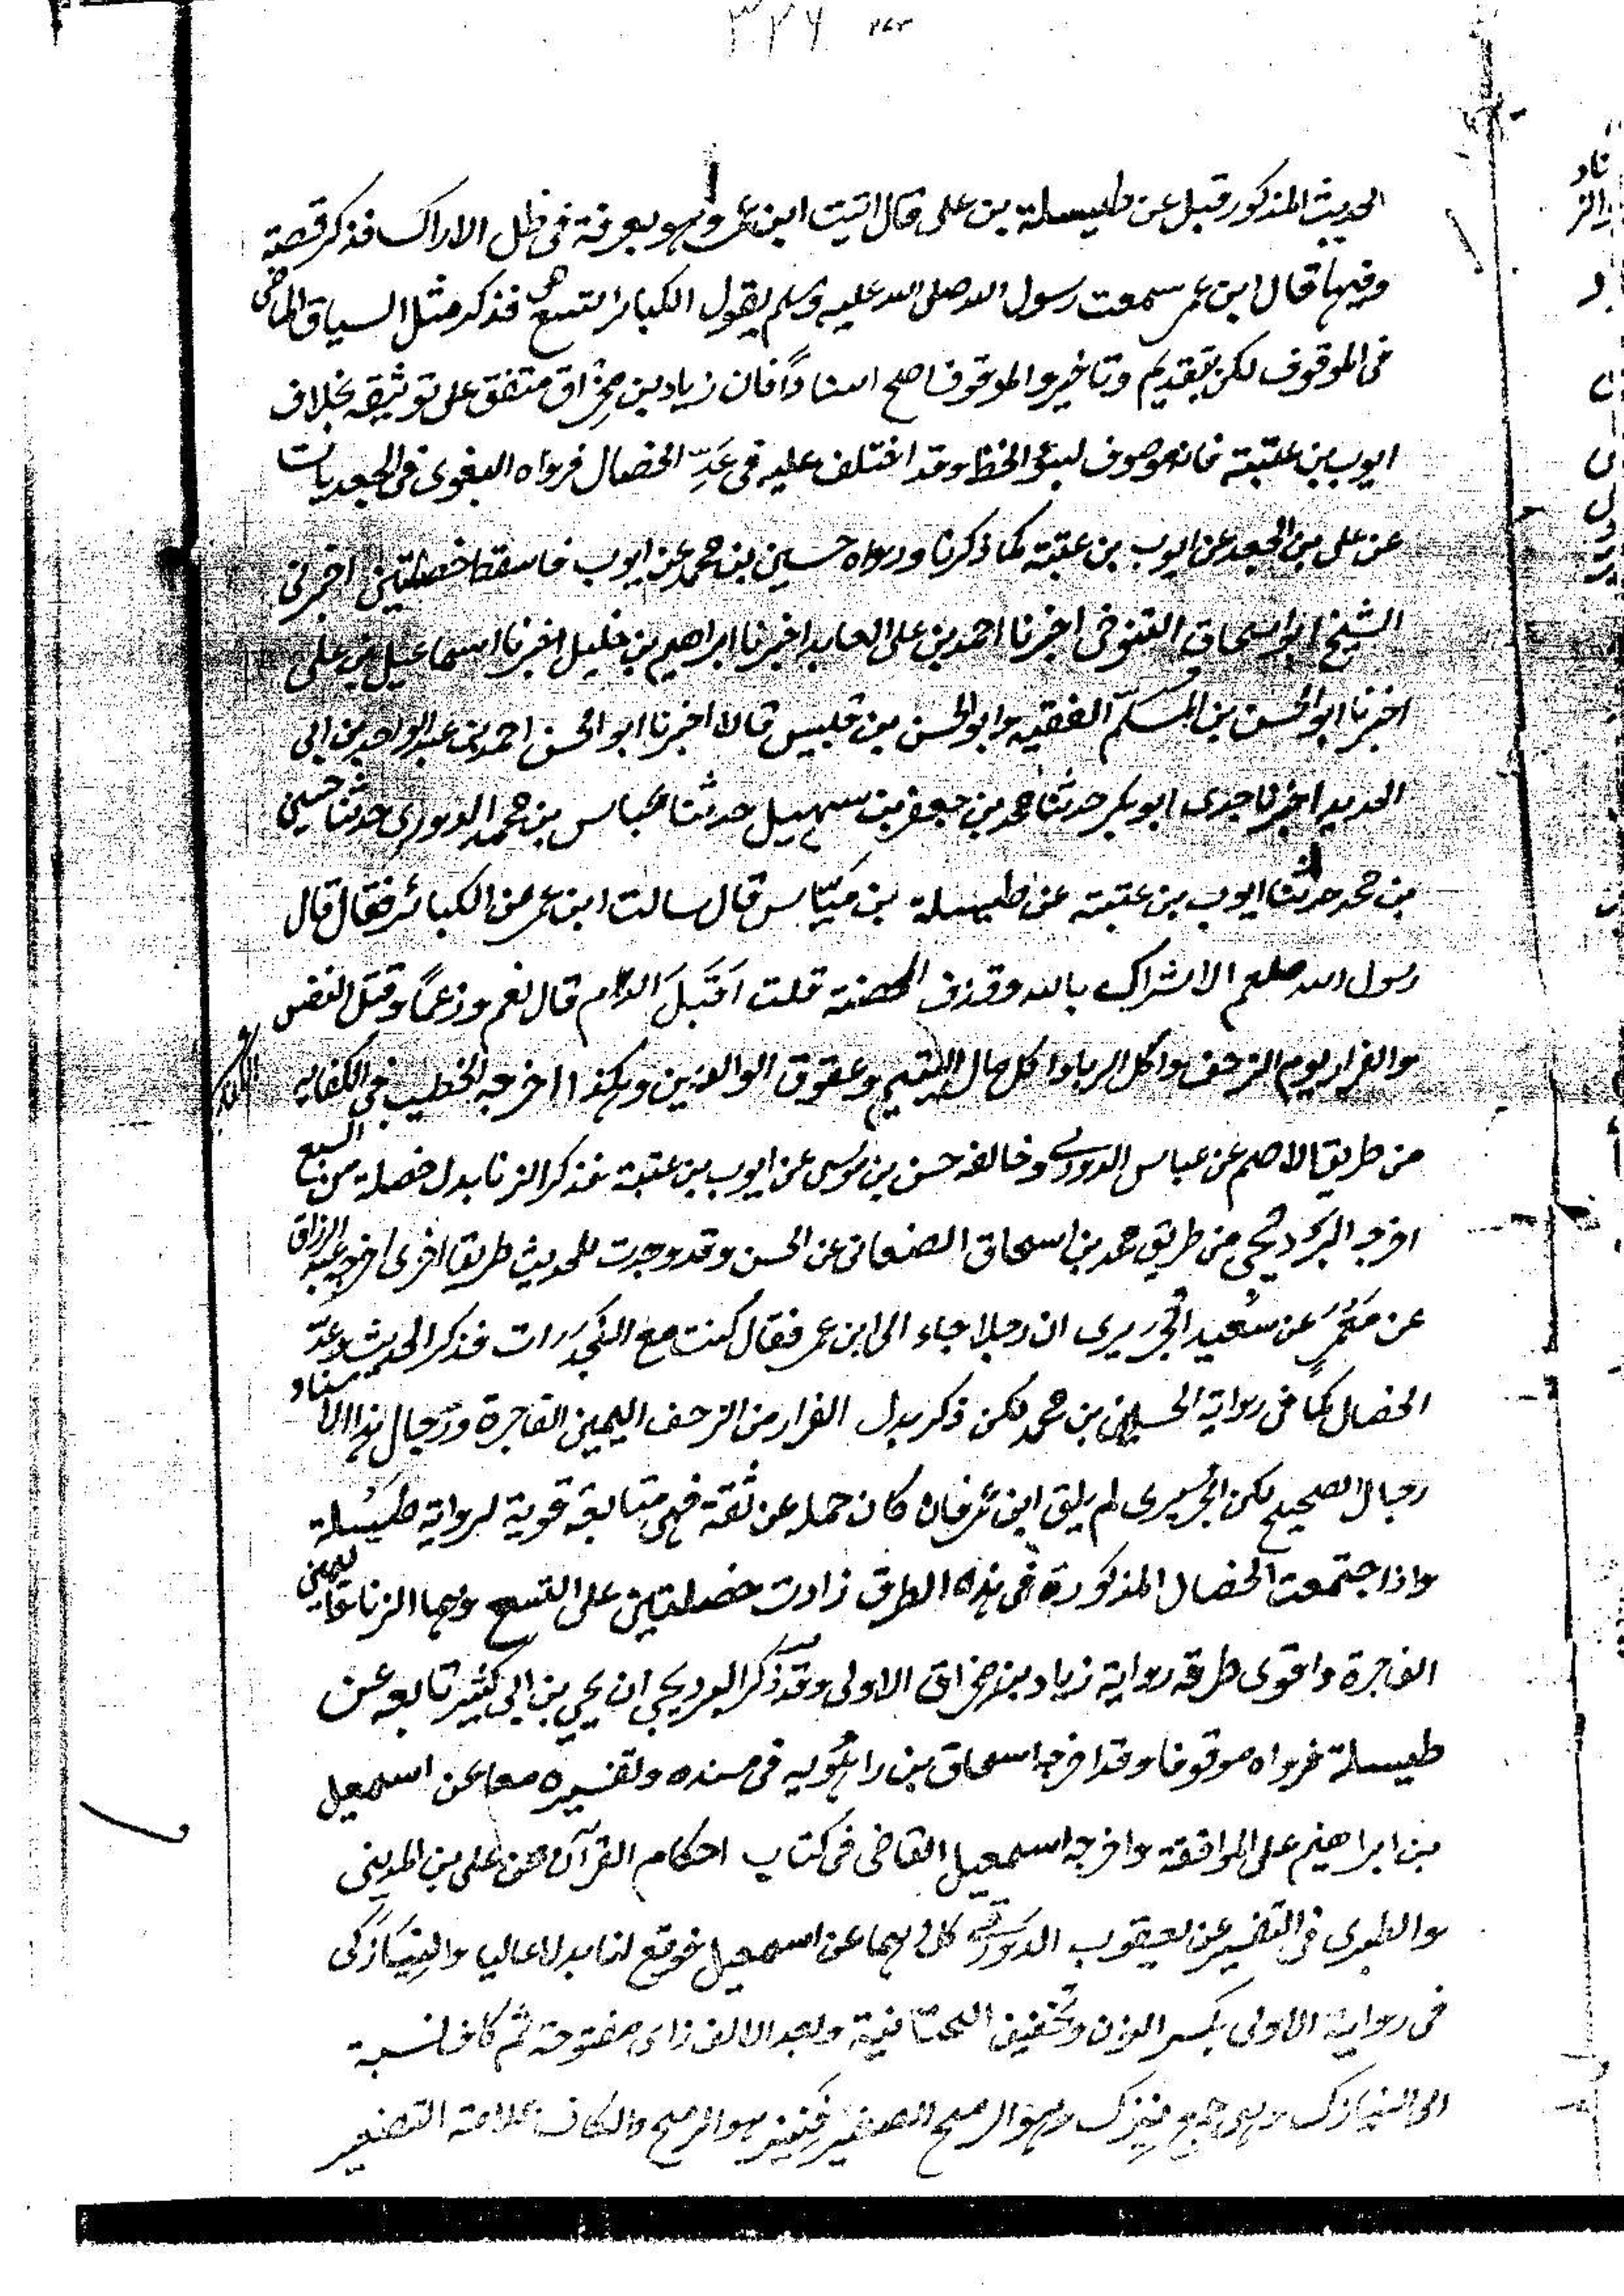 ٣٢٦
الحديث المذكور قبل عن طيسلة بن على قال اتيت ابن عمر وهو بعرفة فى ظل الاراك فذكر قصة
وفيها قال ابن عمر سمعت رسول الله صلى الله عليه وسلم يقول الكبائر تسع فذكر مثل السياق الماضى
فى الموقوف لكن بتقديم وتاخير والموقوف اصح اسنادًا فان زياد بن مِخْراق متفق على توثيقه بخلاف
ايوب بن عتبة فانه موصوف بسوء الحفظ وقد اختلف عليه فى عَدِّ الخصال فرواه البغوى فى الجعديات
عن على بن الجعد عن ايوب بن عتبة كما ذكرنا ورواه حسين بن محمد عن ايوب فاسقط خصلتين اخبرنى
الشيخ ابو اسحاق التنوخى اخبرنا احمد بن على العابد اخبرنا ابراهيم بن خليل اخبرنا اسماعيل بن على
اخبرنا ابو الحسن بن المسلّم الفقيه وابو الحسن بن قبيس قالا اخبرنا ابو الحسن احمد بن عبد الواحد بن ابى
الحديد اخبرنا جدى ابو بكر حدثنا محمد بن جعفر بن سهيل حدثنا عباس بن محمد الدورى حدثنا حسين
بن محمد حدثنا ايوب بن عتبة عن طيسلة بن ميّاس قال سالت ابن عمر عن الكبائر فقال قال
رسول الله صلعم الاشراك بالله وقذف المحصنة قلت اَقَبْلَ الدم قال نعم ورغمًا وقتل النفس
والفرار يوم الزحف واكل الربا واكل مال اليتيم وعقوق الوالدين وهكذا اخرجه الخطيب فى الكفاية
من طريق الاصم عن عباس الدورى وخالفه حسن بن موسى عن ايوب بن عتبة فذكر الزنا بدل خصلة من السبع
اخرجه البرديجى من طريق محمد بن اسحاق الصنعانى عن الحسن وقد وجدت للحديث طريقا اخرى اخرجه عبد الرزاق
عن مَعْمَر عن سعيد الجُريرى ان رجلا جاء الى ابن عمر فقال كنت مع النجدات فذكر الحديث وعدّ
الخصال كما فى رواية الحسين بن محمد لكن ذكر بدل الفرار من الزحف اليمين الفاجرة ورجال هذا الاسناد
رجال الصحيح لكن الجريرى لم يلق ابن عمر فان كان حمله عن ثقة فهى متابعة قوية لرواية طيسلة
واذا جتمعت الخصال المذكورة فى هذه الطرق زادت خصلتين على التسع وهما الزنا واليمين
الفاجرة واقوى طرقه رواية زياد بن مخراق الاولى وقد ذكر البرديجى ان يحيى بن ابى كثير تابعه عن
طيسلة فرواه موقوفا وقد اخرجه اسحاق بن راهُويه فى مسنده وتفسيره معا عن اسمعيل
بن ابراهيم على الموافقة واخرجه اسمعيل القاضى فى كتاب احكام القرآن عن على بن المدينى
والطبرى فى التفسير عن يعقوب الدَورَقى كلاهما عن اسمعيل فوقع لنا بدلا عاليا والنِيَازَكى
فى رواية الاولى بكسر النون وتخفيف التحتانية وبعد الالف زاى مفتوحة ثم كاف نسبة
الى النيازك وهى جمع نيزك وهو الرمح الصغير فنيز هو الرمح والكاف علامة التصغير